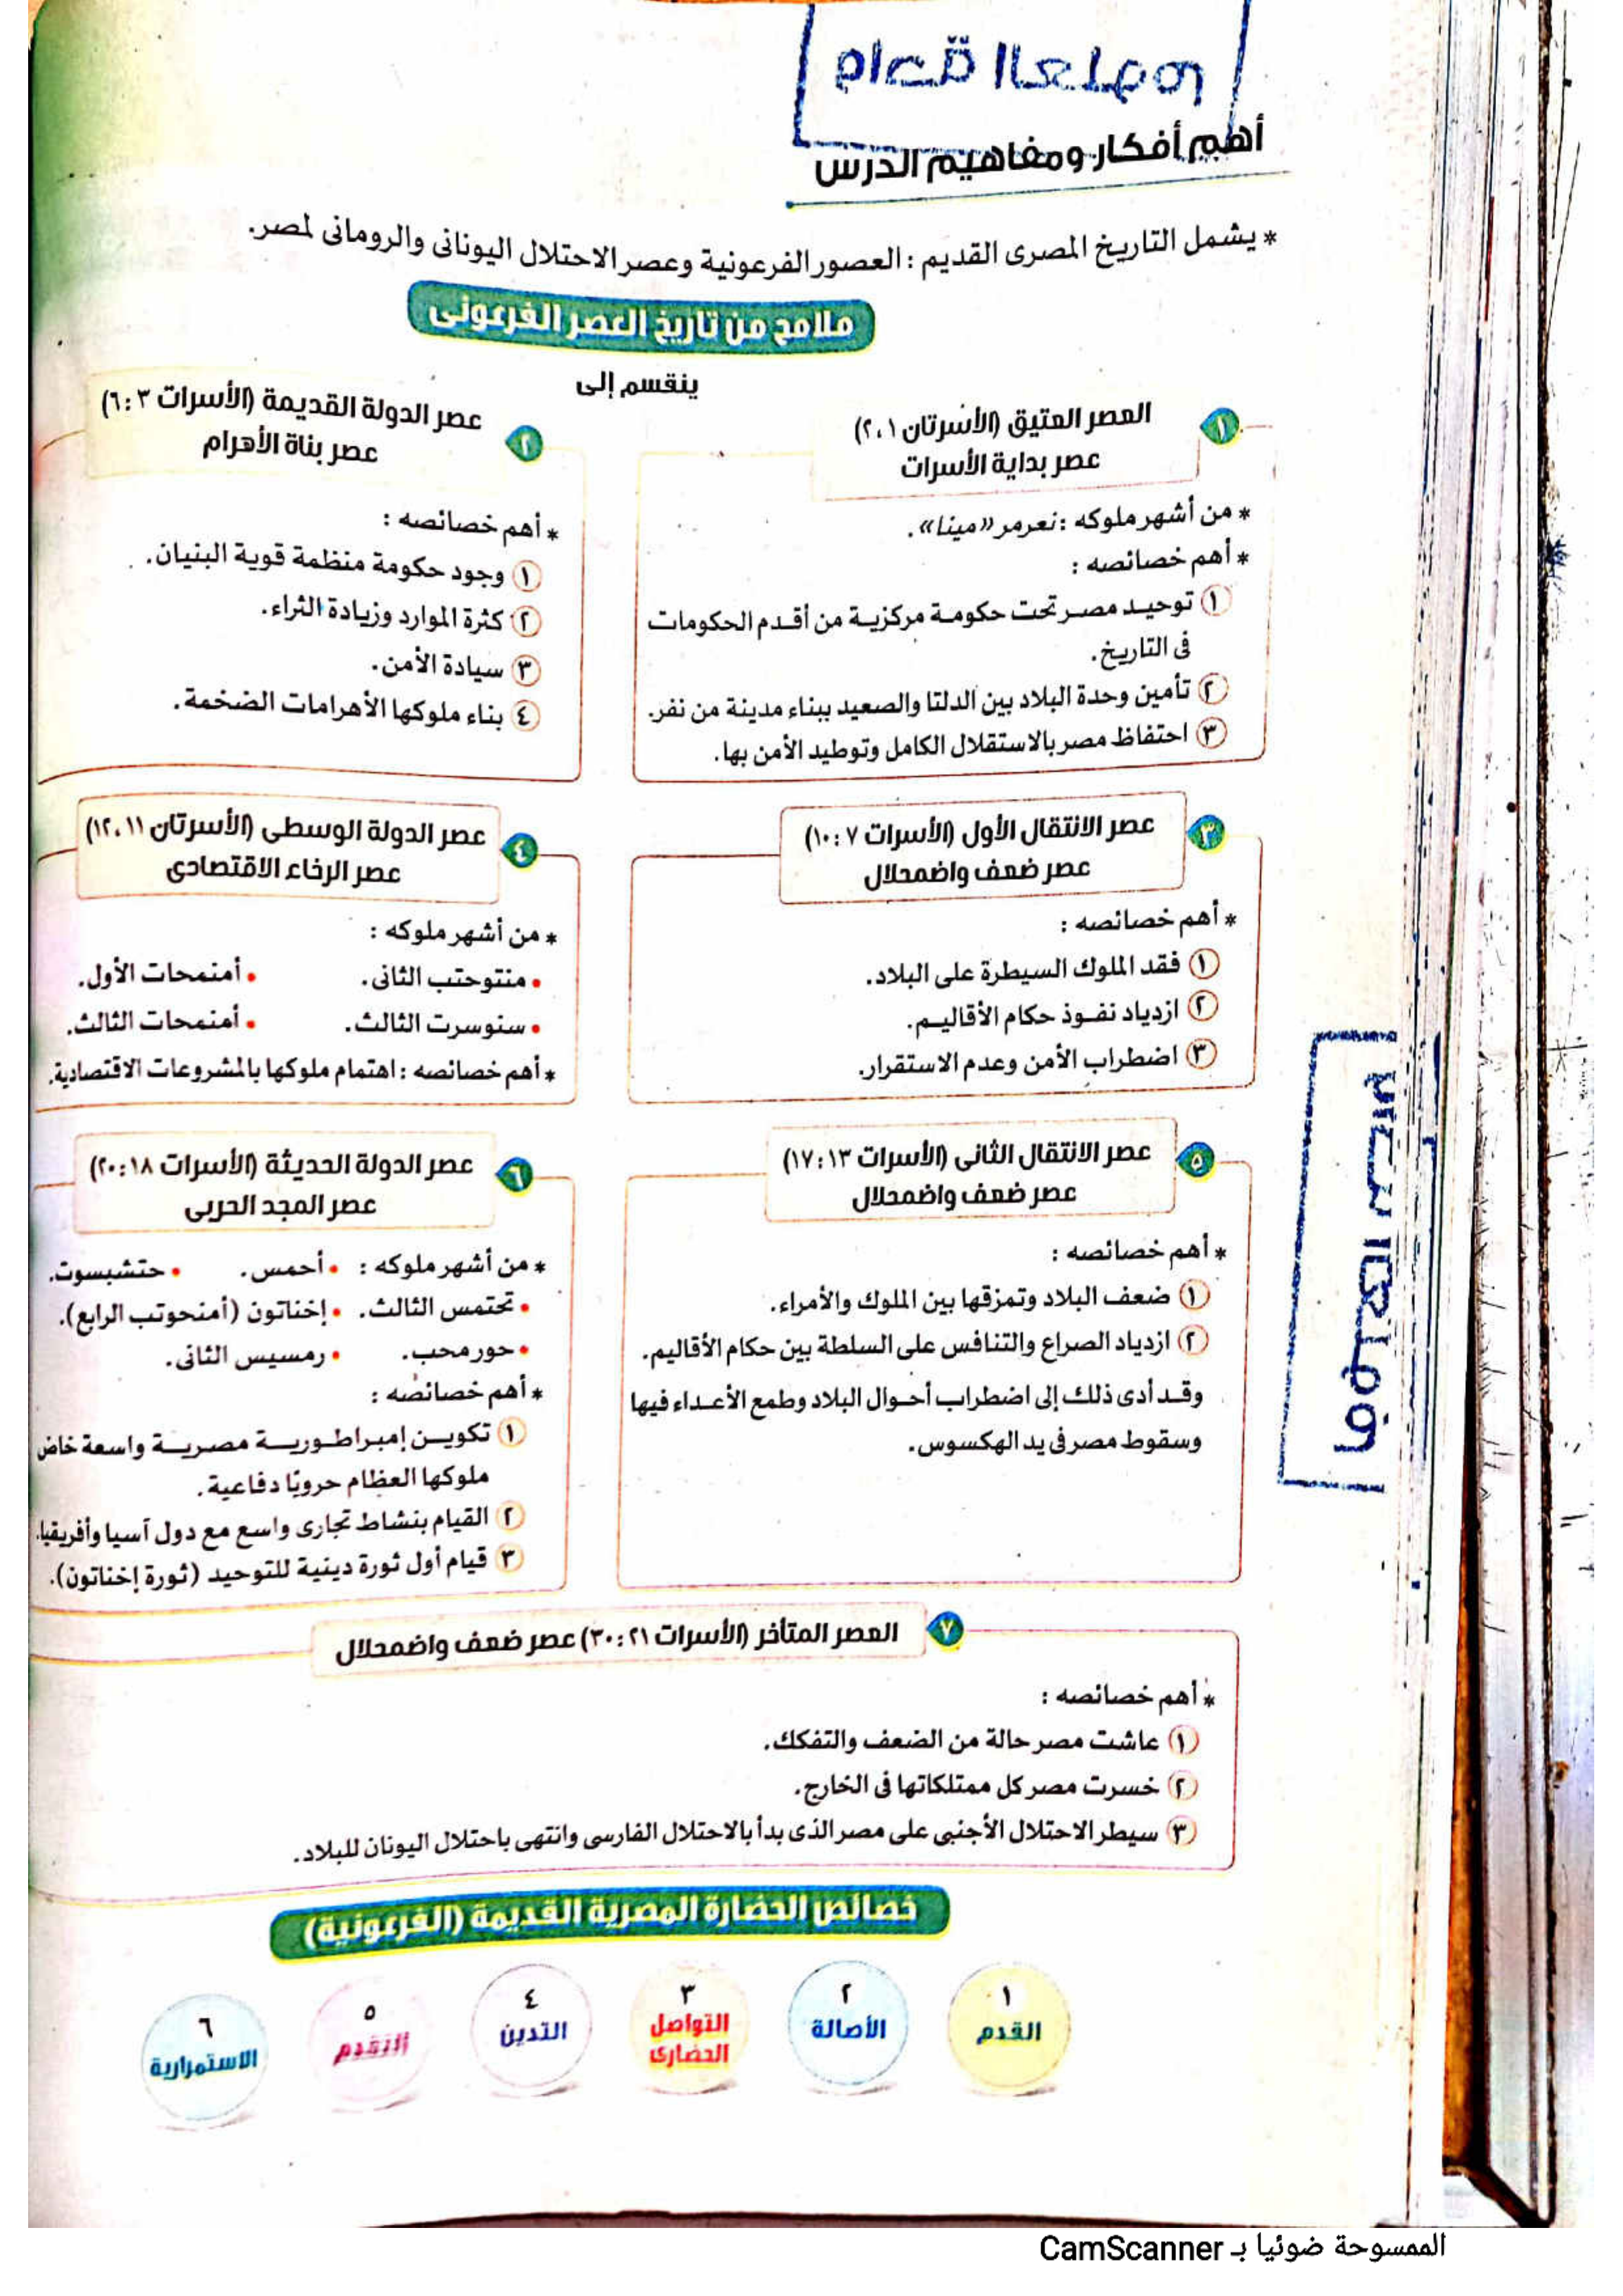 أهم أفكار ومفاهيم الدرس
* يشمل التاريخ المصرى القديم : العصور الفرعونية وعصر الاحتلال اليونانى والرومانى لمصر.
ملامح من تاريخ العصر الفرعونى
ينقسم إلى
١ العصر العتيق (الأسرتان ١، ٢)
عصر بداية الأسرات
* من أشهر ملوكه : نعرمر «مينا».
* أهم خصائصه :
١ توحيد مصر تحت حكومة مركزية من أقدم الحكومات
فى التاريخ.
٢ تأمين وحدة البلاد بين الدلتا والصعيد ببناء مدينة من نفر.
٣ احتفاظ مصر بالاستقلال الكامل وتوطيد الأمن بها.
٢ عصر الدولة القديمة (الأسرات ٣ : ٦)
عصر بناة الأهرام
* أهم خصائصه :
١ وجود حكومة منظمة قوية البنيان.
٢ كثرة الموارد وزيادة الثراء.
٣ سيادة الأمن.
٤ بناء ملوكها الأهرامات الضخمة.
٣ عصر الانتقال الأول (الأسرات ٧ : ١٠)
عصر ضعف واضمحلال
* أهم خصائصه :
١ فقد الملوك السيطرة على البلاد.
٢ ازدياد نفوذ حكام الأقاليم.
٣ اضطراب الأمن وعدم الاستقرار.
٤ عصر الدولة الوسطى (الأسرتان ١١، ١٢)
عصر الرخاء الاقتصادى
* من أشهر ملوكه :
• منتوحتب الثانى. • أمنمحات الأول.
• سنوسرت الثالث. • أمنمحات الثالث.
* أهم خصائصه : اهتمام ملوكها بالمشروعات الاقتصادية.
٥ عصر الانتقال الثانى (الأسرات ١٣ : ١٧)
عصر ضعف واضمحلال
* أهم خصائصه :
١ ضعف البلاد وتمزقها بين الملوك والأمراء.
٢ ازدياد الصراع والتنافس على السلطة بين حكام الأقاليم.
وقد أدى ذلك إلى اضطراب أحوال البلاد وطمع الأعداء فيها
وسقوط مصر فى يد الهكسوس.
٦ عصر الدولة الحديثة (الأسرات ١٨ : ٢٠)
عصر المجد الحربى
* من أشهر ملوكه : • أحمس. • حتشبسوت.
• تحتمس الثالث. • إخناتون (أمنحوتب الرابع).
• حور محب. • رمسيس الثانى.
* أهم خصائصه :
١ تكوين إمبراطورية مصرية واسعة خاض
ملوكها العظام حروبًا دفاعية.
٢ القيام بنشاط تجارى واسع مع دول آسيا وأفريقيا.
٣ قيام أول ثورة دينية للتوحيد (ثورة إخناتون).
٧ العصر المتأخر (الأسرات ٢١ : ٣٠) عصر ضعف واضمحلال
* أهم خصائصه :
١ عاشت مصر حالة من الضعف والتفكك.
٢ خسرت مصر كل ممتلكاتها فى الخارج.
٣ سيطر الاحتلال الأجنبى على مصر الذى بدأ بالاحتلال الفارسى وانتهى باحتلال اليونان للبلاد.
خصائص الحضارة المصرية القديمة (الفرعونية)
١ القدم
٢ الأصالة
٣ التواصل الحضارى
٤ التدين
٥ التقدم
٦ الاستمرارية
الممسوحة ضوئيا بـ CamScanner